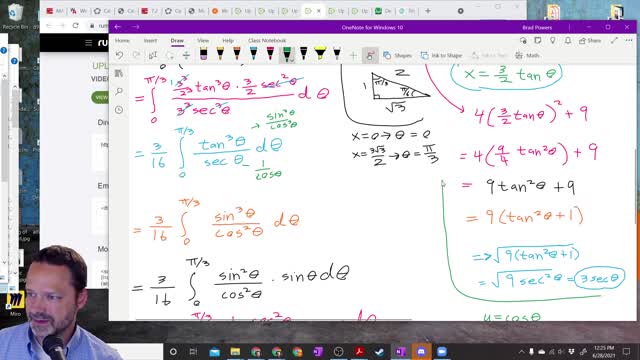 Recycle Bin
OneNote for Windows 10
Brad Powers
Home Insert Draw View Help Class Notebook
UPL
VIDEO
Direct
Email
<Em
Miro
= ∫₀^(π/3) (1/2³ 3³ tan³θ · 3/2 sec²θ) / (3³ sec³θ) dθ
= 3/16 ∫₀^(π/3) tan³θ / sec θ dθ
→ sin³θ / cos³θ
→ 1 / cosθ
= 3/16 ∫₀^(π/3) sin³θ / cos²θ dθ
= 3/16 ∫₀^(π/3) sin²θ / cos²θ · sinθ dθ
π/3
1
2
π/6
√3
x = 0 → θ = 0
x = 3√3/2 → θ = π/3
x = 3/2 tanθ
4(3/2 tanθ)² + 9
= 4(9/4 tan²θ) + 9
= 9tan²θ + 9
= 9(tan²θ + 1)
=> √9(tan²θ+1)
= √9 sec²θ = 3 secθ
u = cosθ
12:25 PM
6/28/2021